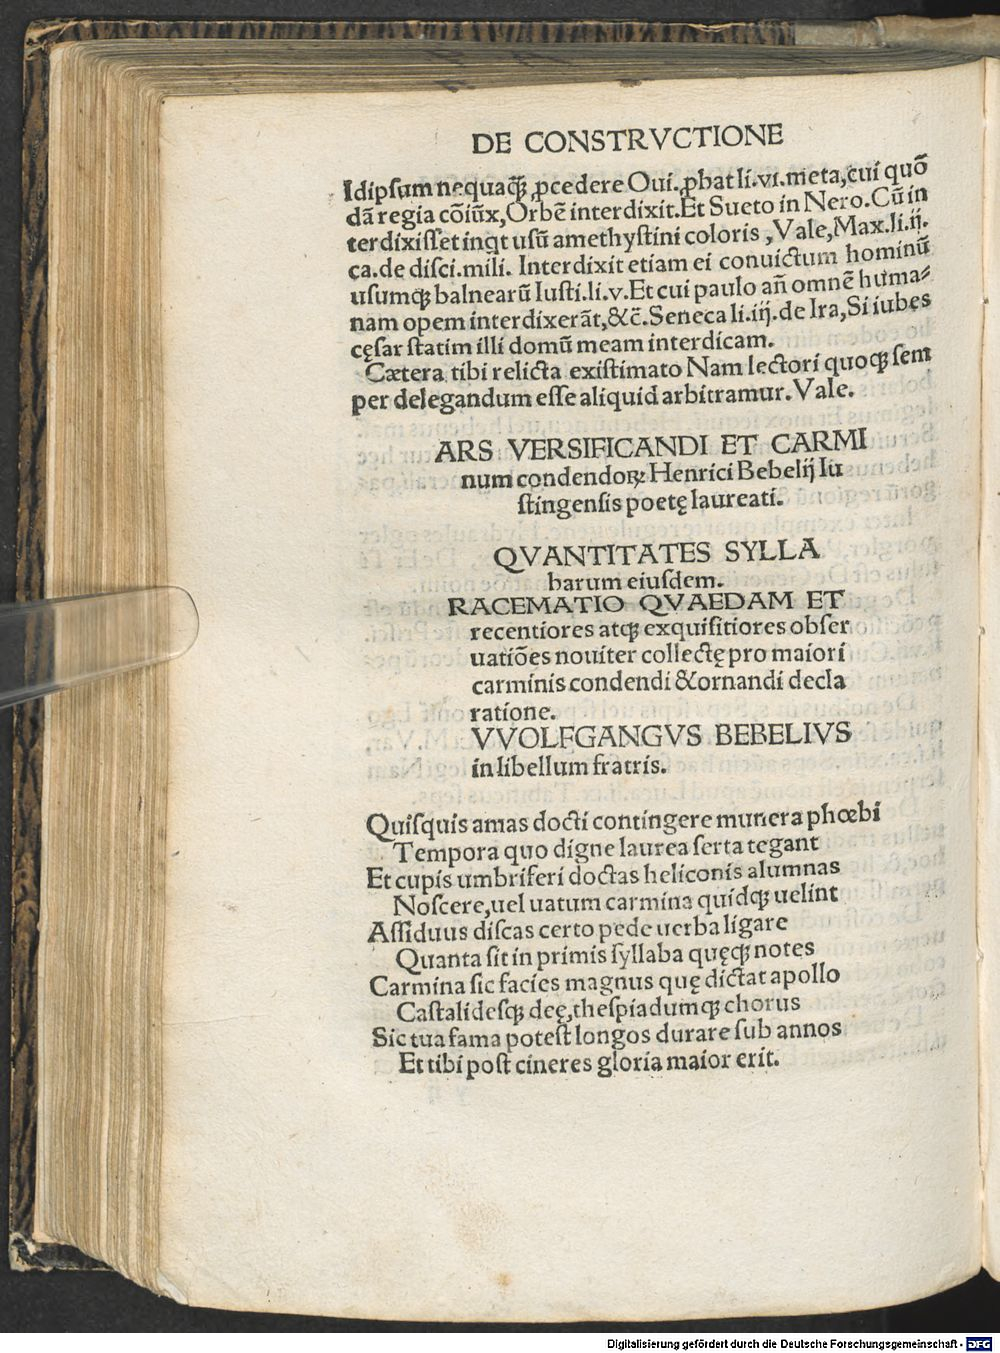 DE CONSTRVCTIONE
Idipsum nequaq̃ꝫ ꝓcedere Oui. ꝓbat li.vi.meta,cui quō
dā regia cōiūx,Orbē interdixit.Et Sueto in Nero.Cū in
terdixisset inqt usū amethystini coloris ,Vale,Max.li.ij.
ca.de disci.mili. Interdixit etiam ei conuictum hominū
usumqꝫ balnearū Iusti.li.v.Et cui paulo añ omnē huma⸗
nam opem interdixerāt,&c̄.Seneca li.iij.de Ira,Si iubes
cęsar statim illi domū meam interdicam.
Cætera tibi relicta existimato Nam lectori quoqꝫ sem
per delegandum esse aliquid arbitramur.Vale.
ARS VERSIFICANDI ET CARMI
num condendoꝝ Henrici Bebelij Iu
stingensis poetę laureati.
QVANTITATES SYLLA
barum eiusdem.
RACEMATIO QVAEDAM ET
recentiores atqꝫ exquisitiores obser
uatiōes nouiter collectę pro maiori
carminis condendi &ornandi decla
ratione.
VVOLFGANGVS BEBELIVS
in libellum fratris.
Quisquis amas docti contingere munera phœbi
Tempora quo digne laurea serta tegant
Et cupis umbriferi doctas heliconis alumnas
Noscere,uel uatum carmina quidqꝫ uelint
Assiduus discas certo pede uerba ligare
Quanta sit in primis syllaba quęqꝫ notes
Carmina sic facies magnus quę dictat apollo
Castalidesqꝫ deę,thespiadumqꝫ chorus
Sic tua fama potest longos durare sub annos
Et tibi post cineres gloria maior erit.
Digitalisierung gefördert durch die Deutsche Forschungsgemeinschaft - DFG